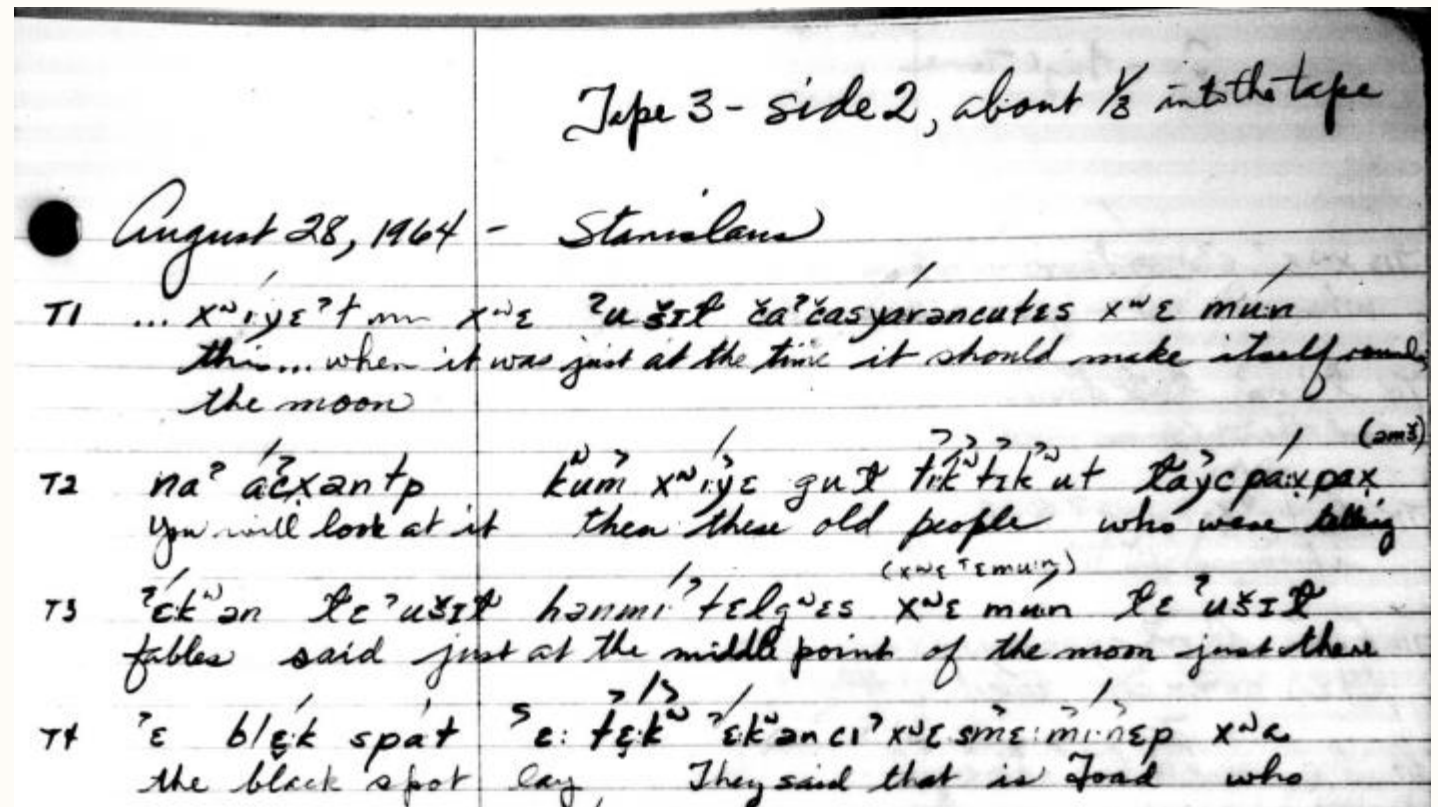 Tape 3 - side 2, about 1/3 into the tape
August 28, 1964 - Stanislaus
T1 ... xʷíyɛʔt xʷɛ ʔušɪɫ čaʔčasyarəncutɛs xʷɛ mún
this... when it was just at the time it should make itself round,
the moon
(əmš)
T2 naʔ áčxəntp k̓ʷum̓ xʷíy̓ɛ guɫ t̓ɪk̓ʷt̓ɪk̓ʷut ɫay̓cpáx̣pax̣
you will look at it then these old people who were telling
(xʷɛ ʔɛmun)
T3 ʔɛ́kʷən ɫɛʔušɪɫ hənmíʔtɛlgʷɛs xʷɛ mún ɫɛʔušɪɫ
fables said just at the middle point of the moon just there
T4 ʔɛ blɛ́k spát ʔɛ: t̓ɛ̣k̓ʷ ʔɛkʷənciʔ xʷɛsmɛ:mi:nɛp xʷa
the black spot lay They said that is Toad who